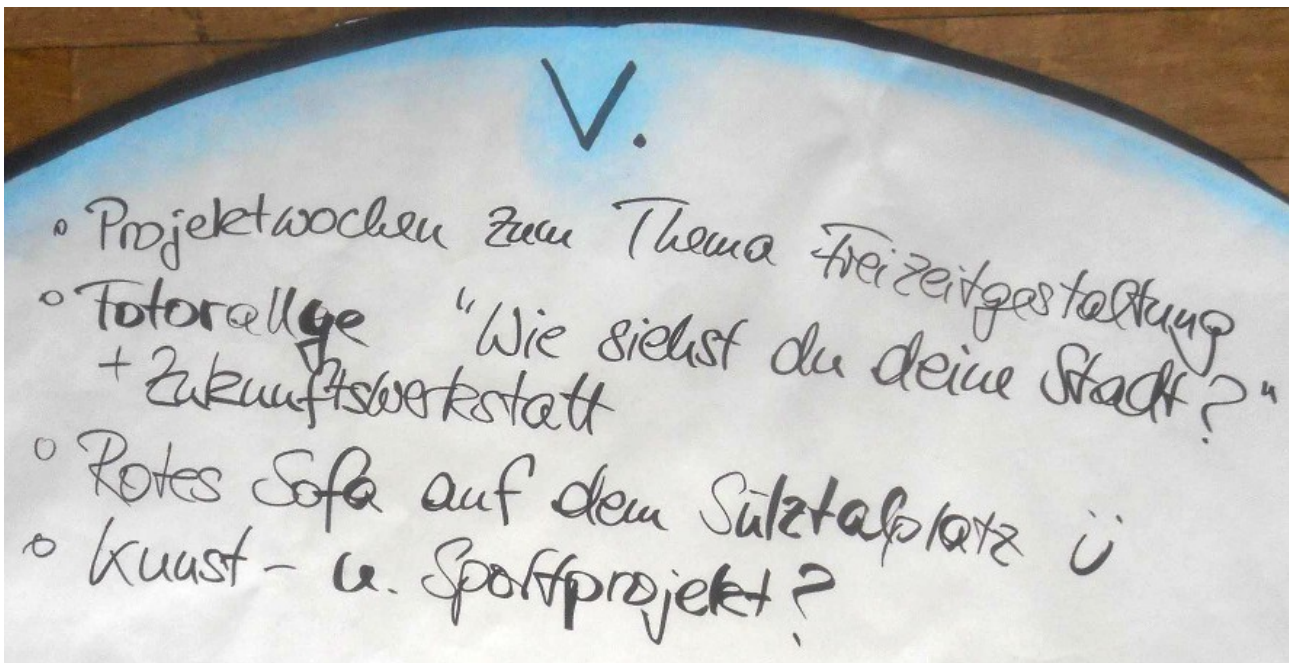 V.
• Projektwochen zum Thema Freizeitgestaltung
• Fotorallye "Wie siehst du deine Stadt?"
+ Zukunftswerkstatt
• Rotes Sofa auf dem Sülztalplatz ü
• Kunst- u. Sportprojekt?